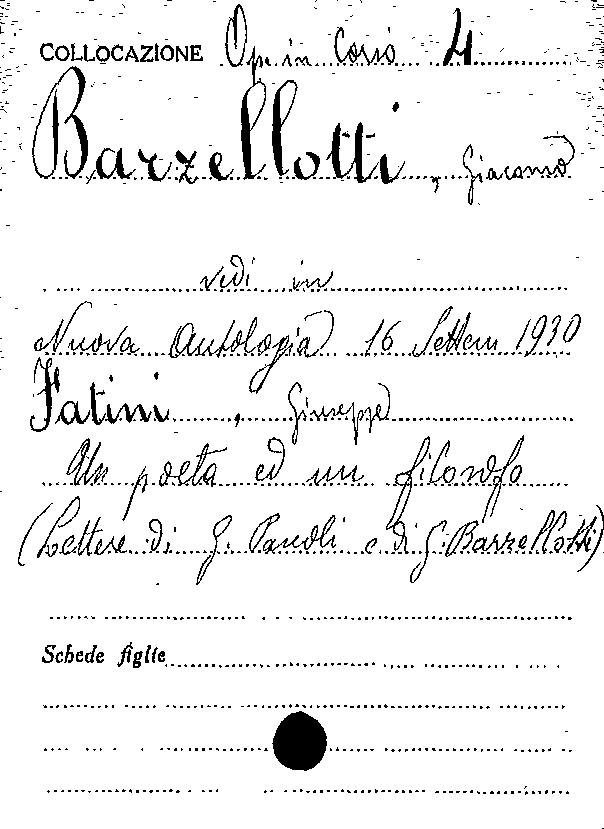 COLLOCAZIONE Op. in Corso 4
Barzellotti, Giacomo
vedi in
Nuova Antologia 16 Settem 1930
Fatini, Giuseppe
Un poeta ed un filosofo
(Lettere di G. Pascoli e di G. Barzellotti)
Schede figlie